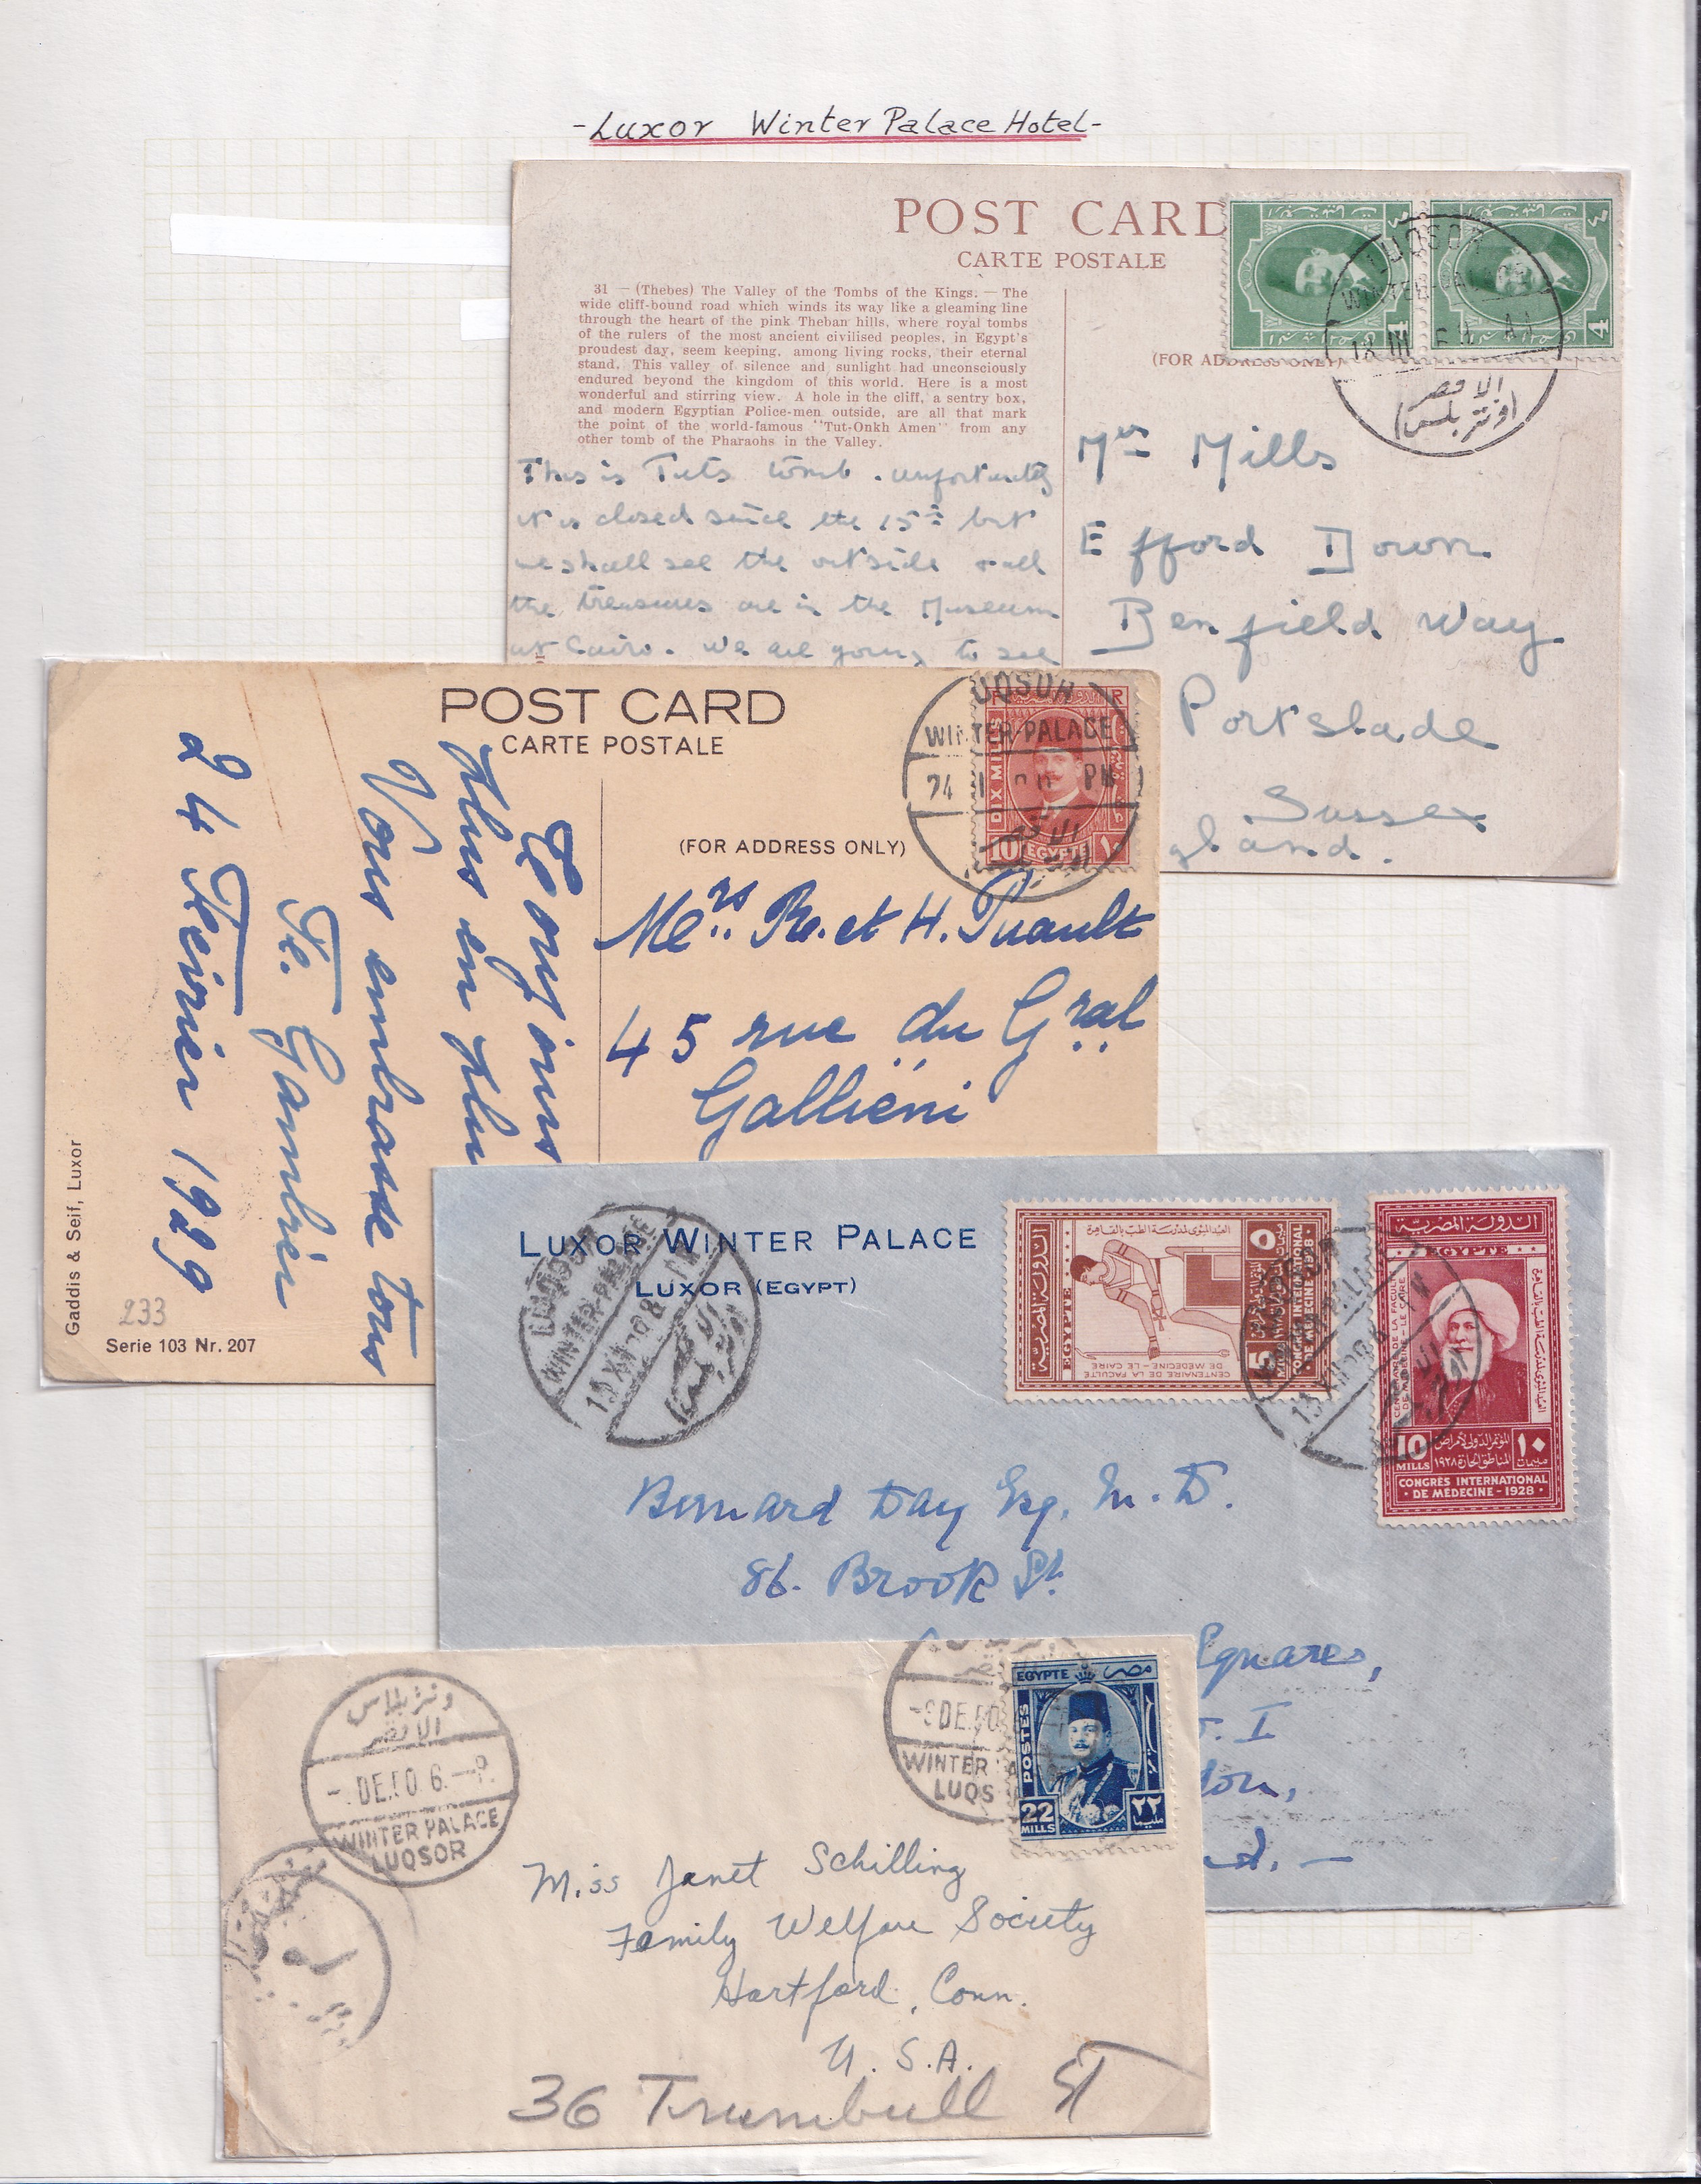 -Luxor Winter Palace Hotel-
POST CARD
CARTE POSTALE
31 — (Thebes) The Valley of the Tombs of the Kings. — The
wide cliff-bound road which winds its way like a gleaming line
through the heart of the pink Theban hills, where royal tombs
of the rulers of the most ancient civilised peoples, in Egypt's
proudest day, seem keeping, among living rocks, their eternal
stand. This valley of silence and sunlight had unconsciously
endured beyond the kingdom of this world. Here is a most
wonderful and stirring view. A hole in the cliff, a sentry box,
and modern Egyptian Police-men outside, are all that mark
the point of the world-famous "Tut-Onkh Amen" from any
other tomb of the Pharaohs in the Valley.
This is Tuts tomb. unfortunately
it is closed since the 15th but
we shall see the outside & all
the treasures are in the Museum
at Cairo. We are going to see
(FOR ADDRESS ONLY)
LUQSOR
WINTER-PALACE
18 III
الاقصر
(ونتر بلس)
4
4
Mrs Mills
Efford Down
Benfield Way
Portslade
Sussex
gland.
POST CARD
CARTE POSTALE
(FOR ADDRESS ONLY)
UQSOR
WINTER-PALACE
24 PM
DIX MILLS
10 EGYPTE ١٠
Mers R. et H. Puault
45 rue du Gral
Galliéni
Toujours
plus en plu
Vous embrasse tous
24 Février 1929
Gaddis & Seif, Luxor
233
Serie 103 Nr. 207
LUXOR WINTER PALACE
LUXOR (EGYPT)
LUQSOR
WINTER-PALACE
13 XII 28
الاقصر
الدولة المصرية
EGYPTE
العيد المئوى لمدرسة الطب بالقاهرة
CENTENAIRE DE LA FACULTE
DE MEDECINE - LE CAIRE
5 ٥
MILLS
CONGRÈS INTERNATIONAL
DE MÉDECINE - 1928
الدولة المصرية
EGYPTE
CENTENAIRE DE LA FACULTÉ
DE MÉDECINE - LE CAIRE
العيد المئوى لمدرسة الطب بالقاهرة
10 MILLS
المؤتمر الدولى لأمراض
المناطق الحارة ١٩٢٨
١٠ مليمات
CONGRÈS INTERNATIONAL
DE MÉDECINE - 1928
13 XII 28
Bernard Day Esq. M.D.
86. Brook St.
Squares,
I
don,
d. —
ونتر بلاس
الاقصر
DE. 50 6.-P.
WINTER PALACE
LUQSOR
DE. 50
WINTER
LUQS
EGYPTE مصر
POSTES
22 MILLS
٢٢ مليما
Miss Janet Schilling
Family Welfare Society
Hartford, Conn.
U. S. A.
36 Trumbull St